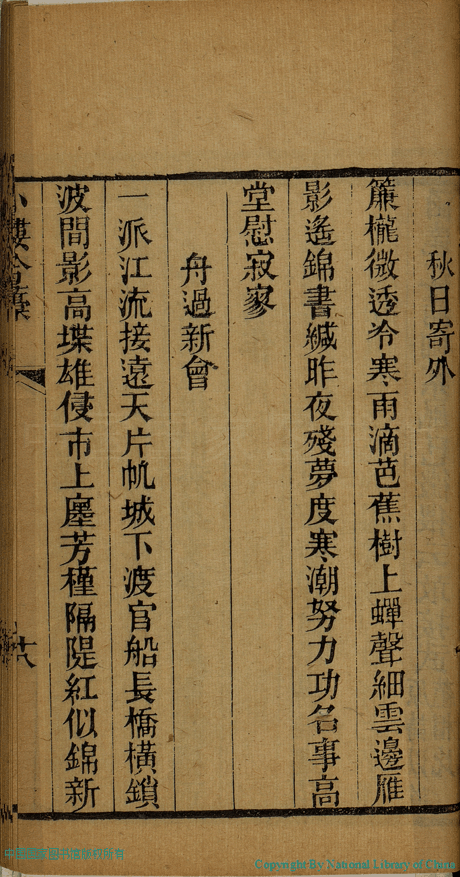 秋日寄外
簾櫳微透冷寒雨滴芭蕉樹上蟬聲細雲邊雁
影遙錦書緘昨夜殘夢度寒潮努力功名事高
堂慰寂寥
舟過新會
一派江流接遠天片帆城下渡官船長橋橫鎖
波間影高堞雄侵市上廛芳槿隔隄紅似錦新
小樓吟藁
十八
中國國家圖書館版權所有
Copyright By National Library of China